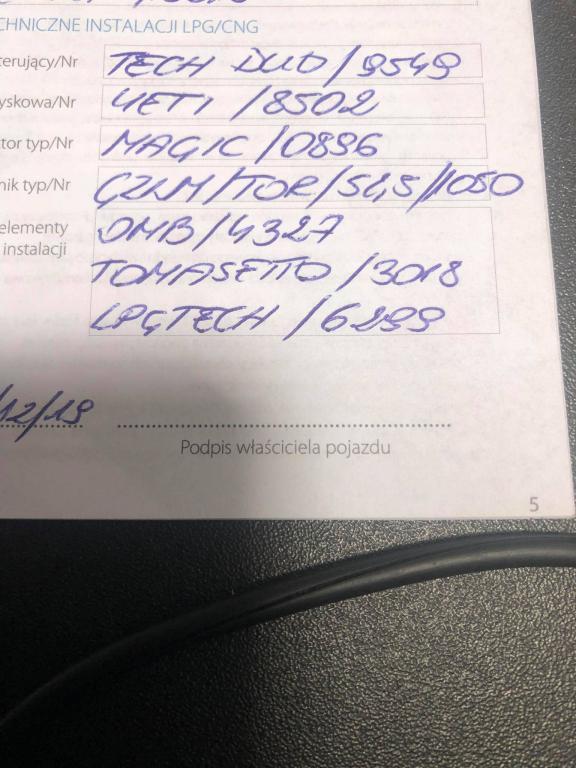 CHNICZNE INSTALACJI LPG/CNG
terujący/Nr TECH DUO/9549
yskowa/Nr YETI /8502
tor typ/Nr MAGIC/0896
nik typ/Nr GZWM/TOR/545/1050
elementy OMB/4327
instalacji
TOMASETTO /3018
LPGTECH /6299
/12/19
Podpis właściciela pojazdu
5